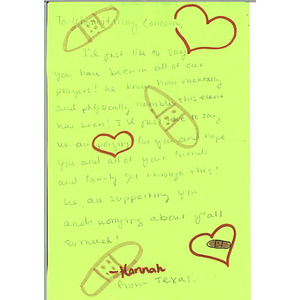 To Whom it may Concern,
I'd just like to say
you have been in all of our
prayers! We know how mentally
and physically this event
has been! I'd just like to say
we are worrying for you and hope
you and all of your friends
and family get through this!
We are supporting you
and worrying about y'all
so much!
-Hannah
from Texas.